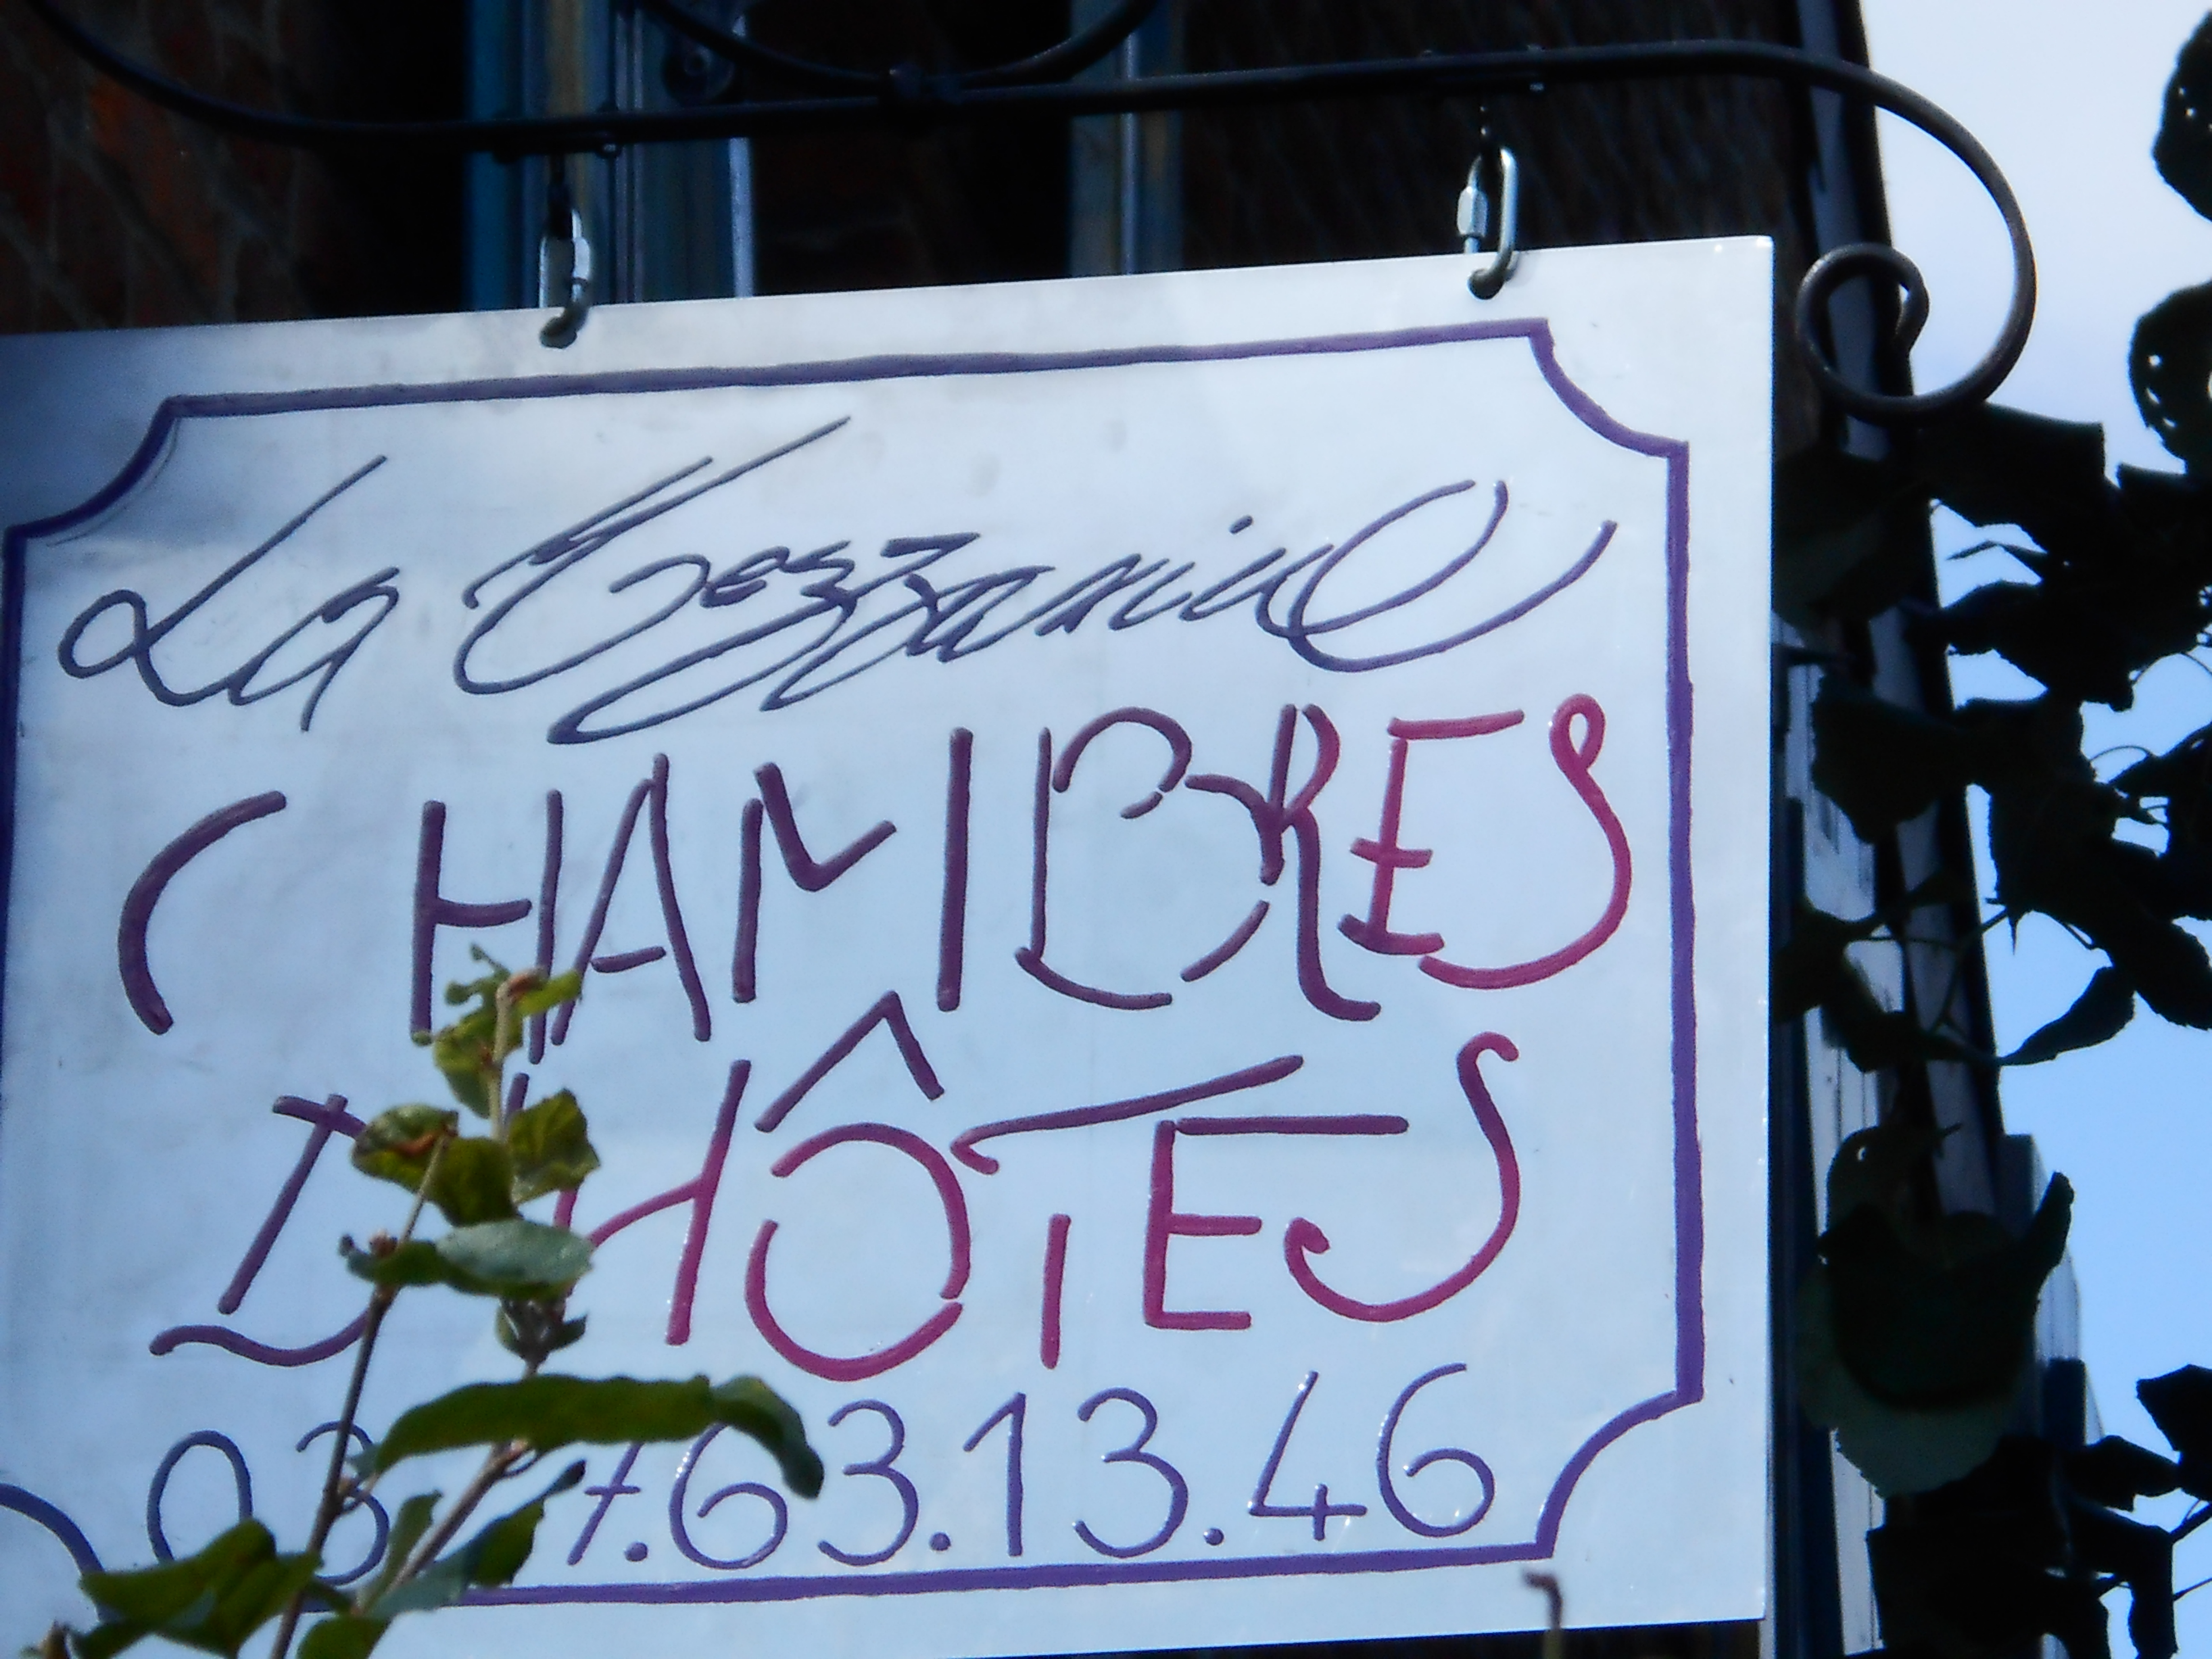 La Mezzanine
CHAMBRES
D'HÔTES
03 7.63.13.46